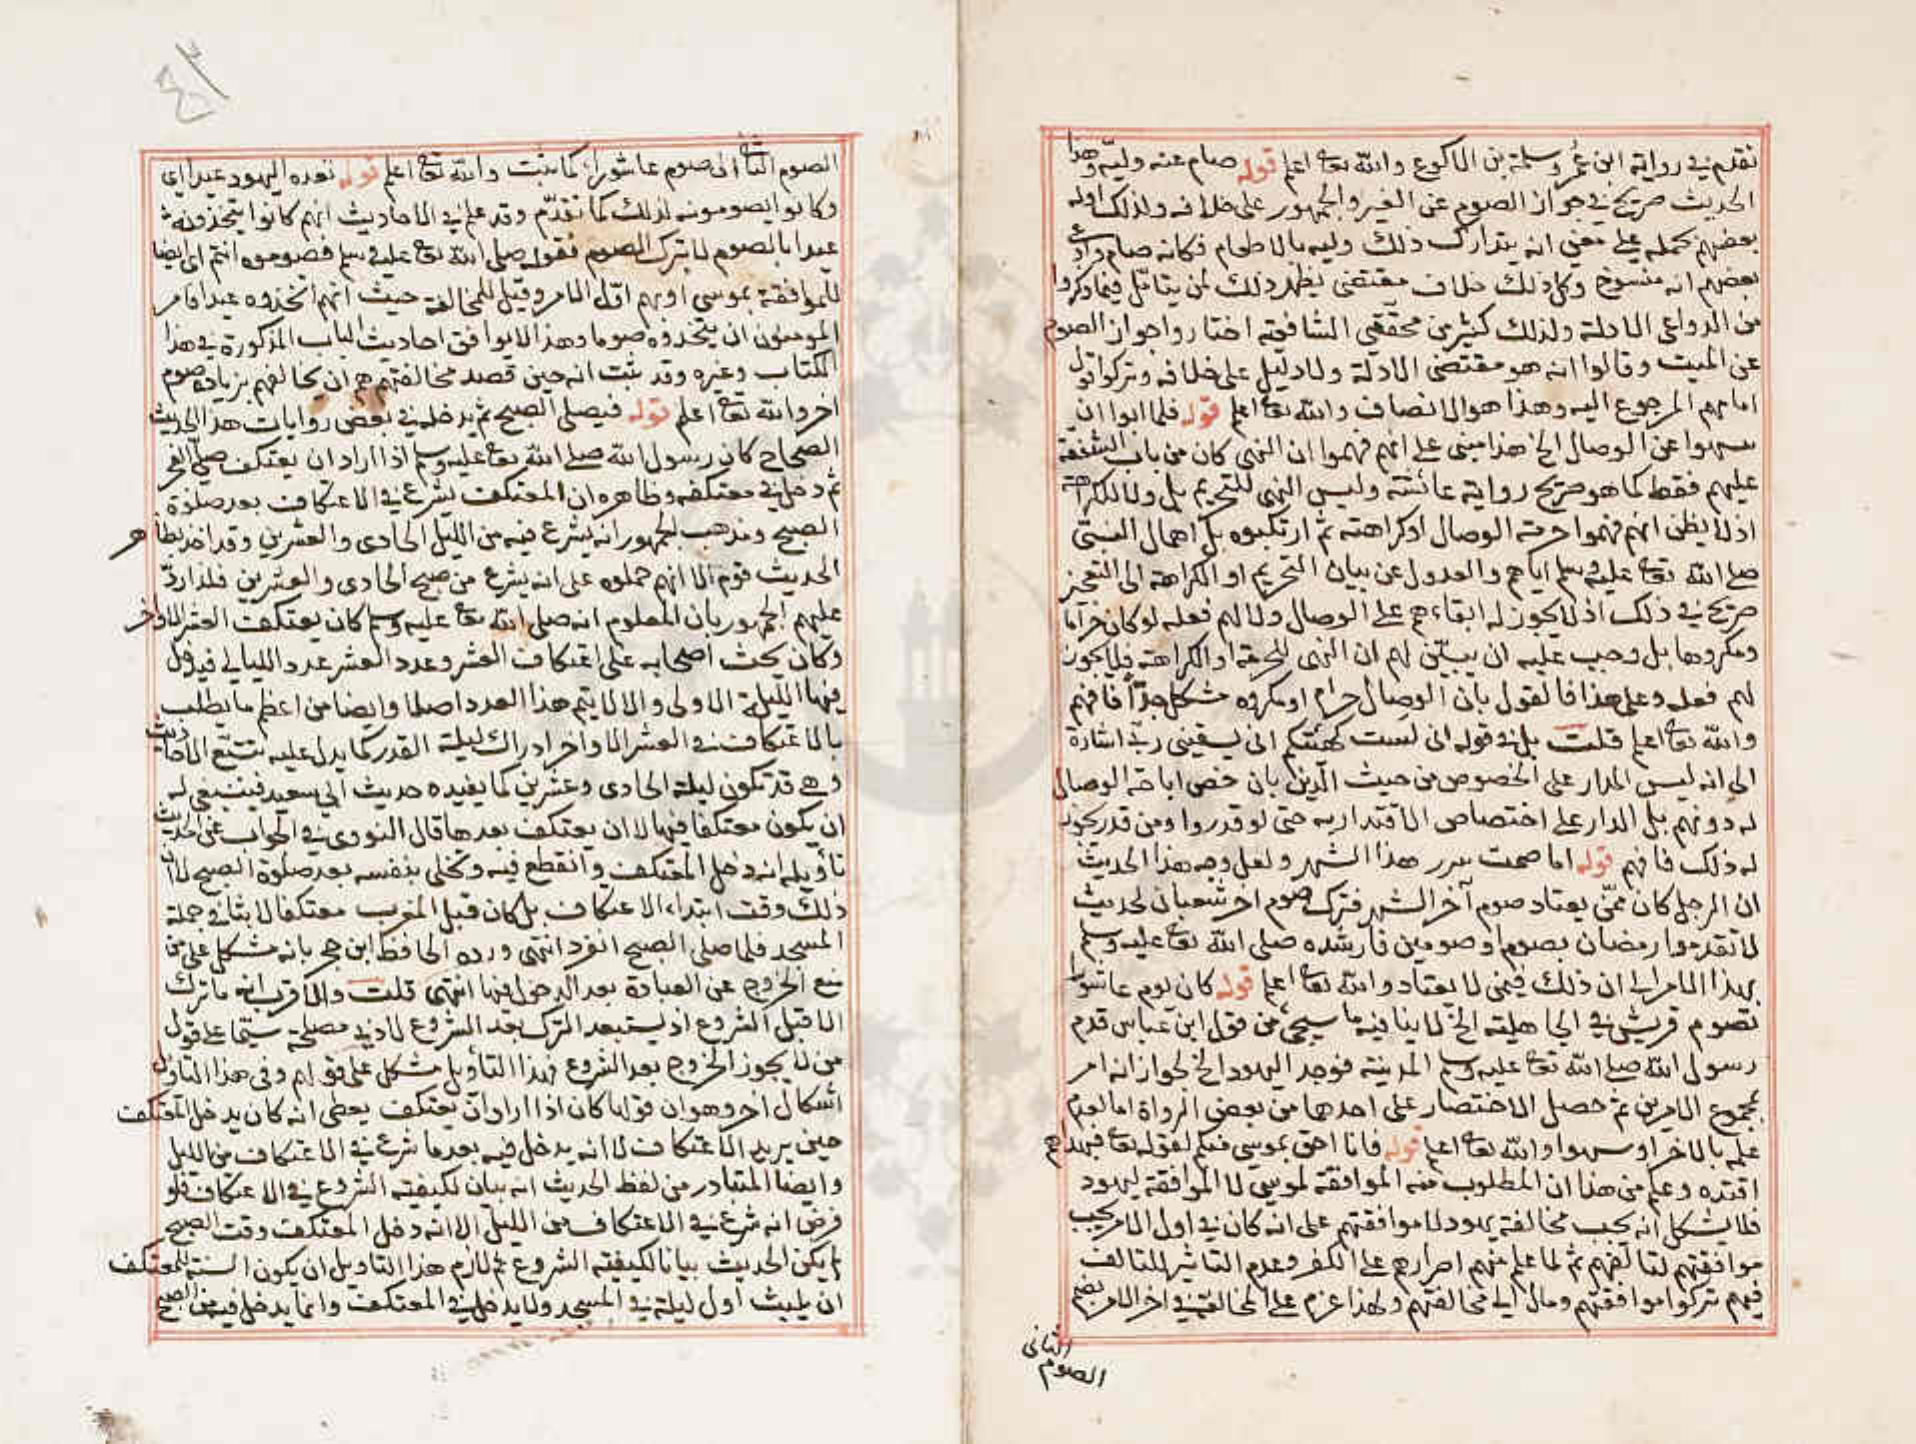 تقدم في رواية ابن عمر وسلمة بن الاكوع والله تعا اعلم قوله صام عنه وليه وهذا
الحديث صريح في جواز الصوم عن الغير والجمهور على خلافه ولذلك اوله
بعضهم بحمله على معنى انه يتدارك ذلك وليه بالاطعام فكانه صام وادعى
بعضهم انه منسوخ وكل ذلك خلاف مقتضى يظهر ذلك لمن يتامل فيما ذكروا
من الدواعي الادلة ولذلك كثير من محققي الشافعية اختاروا جواز الصوم
عن الميت وقالوا انه هو مقتضى الادلة ولا دليل على خلافه وتركوا قول
امامهم المرجوع اليه وهذا هو الانصاف والله تعا اعلم قوله فلما ابوا ان
ينتهوا عن الوصال الخ هذا مبني على انهم فهموا ان النهي كان من باب الشفقة
عليهم فقط كما هو صريح رواية عائشة وليس النهي للتحريم بل ولا للكراهة
اذ لا يظن انهم فهموا حرمة الوصال او كراهته ثم ارتكبوه بل اهمال النبي
صلى الله تعا عليه وسلم اياهم والعدول عن بيان التحريم او الكراهة الى التعجيز
صريح في ذلك اذ لا يجوز له ابقاءهم على الوصال ولا لهم فعله لو كان حراما
ومكروها بل وجب عليه ان يبين لهم ان النهي للحرمة او الكراهة فلا يجوز
لهم فعله وعلى هذا فالقول بان الوصال حرام او مكروه مشكل جدّا فافهم
والله تعا اعلم قلت بل في قوله اني لست كهيئتكم اني يسقيني ربي اشارة
الى انه ليس المدار على الخصوص من حيث الدين بان خص اباحة الوصال
له دونهم بل المدار على اختصاص الاقتدار به حتى لو قدروا ومن قدر يجوز
له ذلك فافهم قوله اما صمت سرر هذا الشهر ولعل وجه هذا الحديث
ان الرجل كان ممّن يعتاد صوم آخر الشهر فترك صوم اخر شعبان لحديث
لا تقدموا رمضان بصوم او صومين فارشده صلى الله تعا عليه وسلم
بهذا الامر الى ان ذلك فيمن لا يعتاد والله تعا اعلم قوله كان يوم عاشورا
تصوم قريش في الجاهلية الخ لا ينافيه ما سيجئ من قول ابن عباس قدم
رسول الله صلى الله تعا عليه وسلم المدينة فوجد اليهود الخ لجواز انه امر
بمجموع الامرين ثم حصل الاختصار على احدهما من بعض الرواة اما لعدم
علمه بالاخر او سهوا والله تعا اعلم قوله فانا احق بموسى منكم لقوله تعا فبهداهم
اقتده وعلم من هذا ان المطلوب منه الموافقة لموسى لا الموافقة ليهود
فلا يشكل انه يجب مخالفة يهود لا موافقتهم على انه كان في اول الامر يحب
موافقتهم لتالفهم ثم لما علم منهم اصرارهم على الكفر وعدم التاثير للتالف
فيهم ترك موافقتهم ومال الى مخالفتهم ولهذا عزم على المخالفة في اخر الامر بضم
الثاني
الصوم
الصوم الثاني الى صوم عاشوراء كما ثبت والله تعا اعلم قوله تعده اليهود عيدا اي
وكانوا يصومونه لذلك كما تقدّم وقد علم في الاحاديث انهم كانوا يتخذونه
عيدا بالصوم لا بترك الصوم فقوله صلى الله تعا عليه وسلم فصوموه انتم اى ايضا
للموافقة بموسى او بهم اوّل الامر وقيل للمخالفة حيث انهم اتخذوه عيدا فامر
المومنون ان يتخذوه صوما وهذا لا يوافق احاديث الباب المذكورة في هذا
الكتاب وغيره وقد ثبت انه حين قصد مخالفتهم همّ ان يخالفهم بزيادة صوم
اخر والله تعا اعلم قوله فيصلى الصبح ثم يدخله في بعض روايات هذا الحديث
الصحاح كان رسول الله صلى الله تعا عليه وسلم اذا اراد ان يعتكف صلّى الفجر
ثم دخل في معتكفه وظاهره ان المعتكف يشرع في الاعتكاف بعد صلوة
الصبح ومذهب الجمهور انه يشرع فيه من الليل الحادى والعشرين وقد اخذ بظاهر
الحديث قوم الا انهم حملوه على انه يشرع من صبح الحادى والعشرين فلذا ردّ
عليهم الجمهور بان المعلوم انه صلى الله تعا عليه وسلم كان يعتكف العشر الاواخر
وكان يحث اصحابه على اعتكاف العشر وعدد العشر عدد الليالي فيدخل
فيها الليلة الاولى والا لا يتم هذا العدد اصلا وايضا من اعظم ما يطلب
بالاعتكاف في العشر الاواخر ادراك ليلة القدر كما يدل عليه تتبّع الاحاديث
وهي قد تكون ليلة الحادى وعشرين كما يفيده حديث ابي سعيد فينبغي له
ان يكون معتكفا فيها لا ان يعتكف بعدها قال النووى في الجواب عن الحديث
تاويله انه دخل المعتكف وانقطع فيه وتخلى بنفسه بعد صلوة الصبح لا ان
ذلك وقت ابتداء الاعتكاف بل كان قبل المغرب معتكفا لابثا في جملة
المسجد فلما صلى الصبح انفرد انتهى ورده الحافظ ابن حجر بانه مشكل على من
منع الخروج عن العبادة بعد الدخول فيها انتهى قلت والاقرب انه ما ترك
الا قبل الشروع اذ يستبعد الترك بعد الشروع لادنى مصلحة سيّما على قول
من لا يجوز الخروج بعد الشروع فهذا التأويل مشكل على قولهم وفى هذا التاويل
اشكال اخر وهو ان قولها كان اذا اراد ان يعتكف يعطى انه كان يدخل المعتكف
حين يريد الاعتكاف لا انه يدخل فيه بعدما شرع في الاعتكاف من الليل
وايضا المتبادر من لفظ الحديث انه بيان لكيفية الشروع في الاعتكاف فلو
فرض انه شرع في الاعتكاف من الليل الا انه دخل المعتكف وقت الصبح
لم يكن الحديث بيانا لكيفية الشروع ثم لازم هذا التاويل ان يكون السنة للمعتكف
ان يلبث اول ليلة في المسجد ولا يدخل في المعتكف وانما يدخل فيه من الصبح